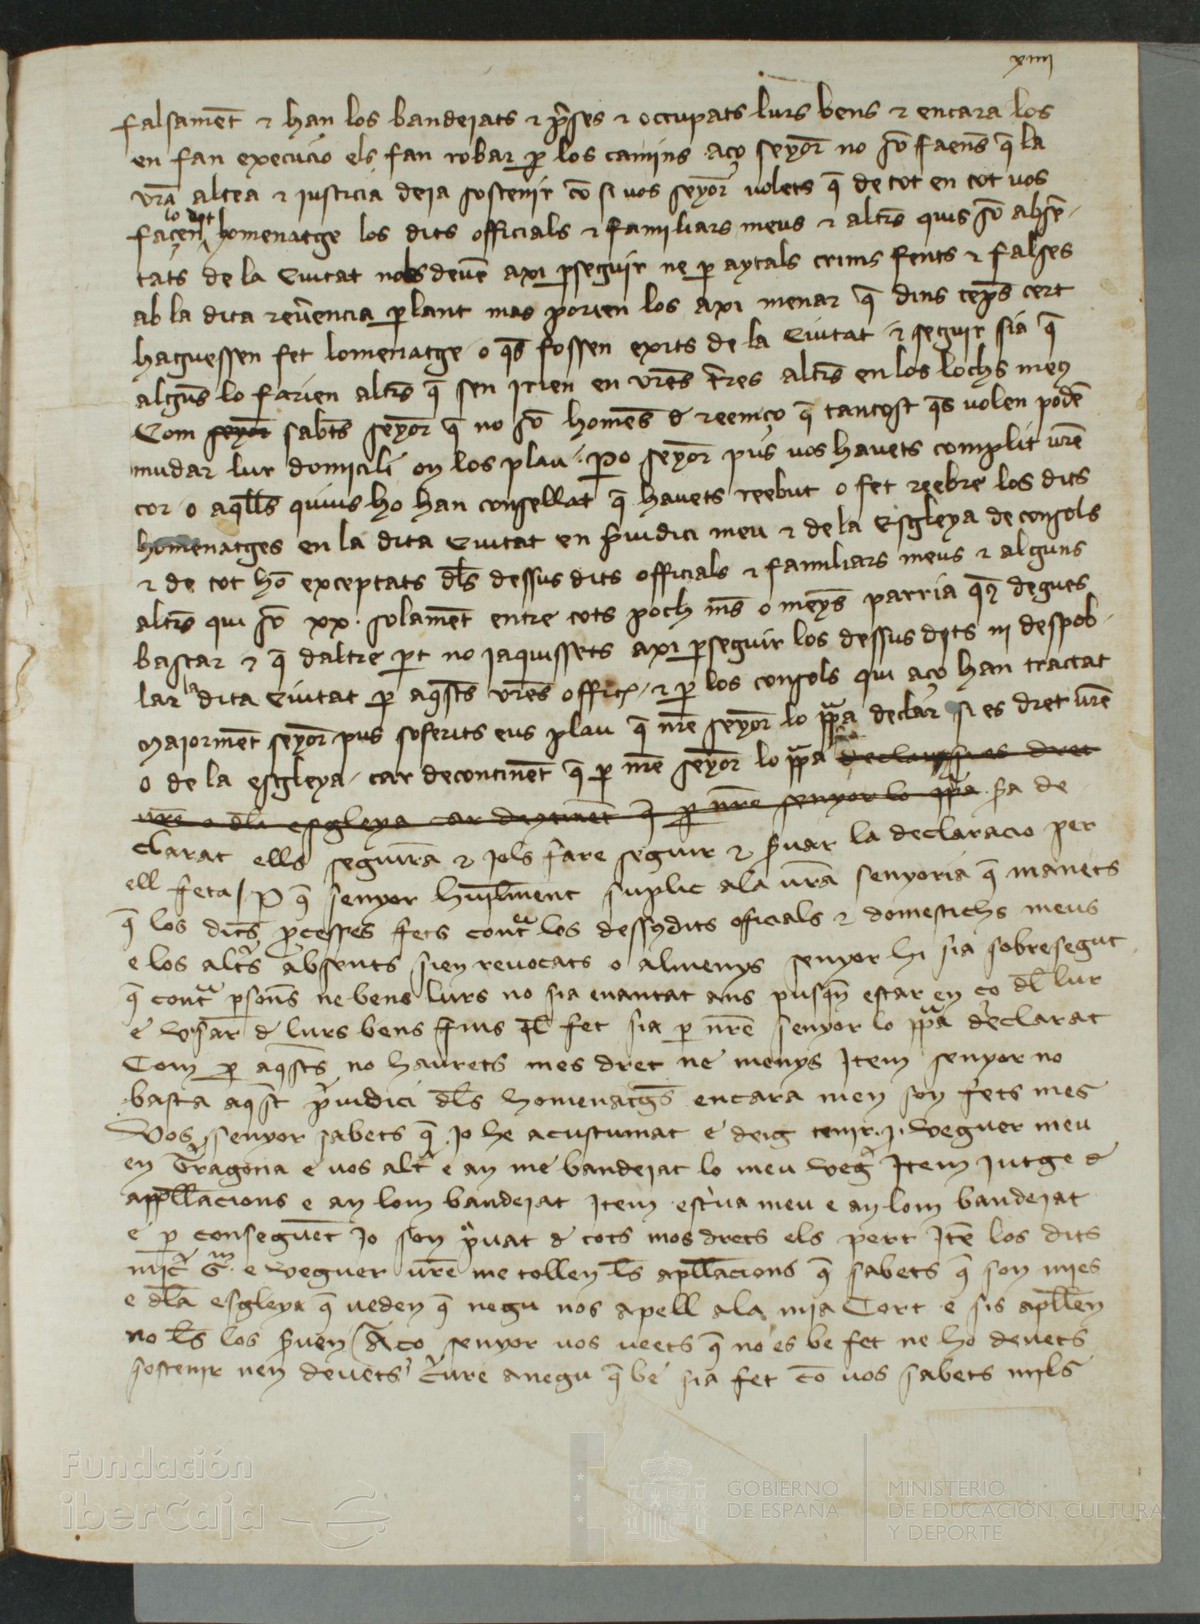 xiiii
falsamēt & han los bandejats & p̄ses & occupats lurs bens & encara los
en fan execucio els fan robar p̱ los camins aço seyor no sō faens q̄ la
vr̄a altea & justicia deja sostenir cō si vos seyor volets q̄ de tot en tot vos
façen lo dit homenatge los dits officials & familiars meus & altr̄s quis sō absē-
tats de la Ciutat nols devē axi p̱seguir ne p̱ aytals crims fents & falses
ab la dita rev̄encia p̱lant mas porien los axi menar q̄ dins tēps cert
haguessen fet lomenatge o q̄s fossen exits de la Ciutat & seguir sia q̄
algūs lo farien altr̄s q̄ sen irien en vr̄es t̄res altr̄s en los lochs meus
Com seyor sabēts seyor q̄ no sō homēs d reemço q̄ tantost q̄s volen podē
mudar lur domicili on los plau. Po seyor pus vos havets complit vr̄e
cor o aq̄lls quius ho han consellat q̄ havets reebut o fet reebre los dits
homenatges en la dita Ciutat en p̄judici meu & de la Esgleya de consols
& de tot hō exceptats dl̄s dessus dits officials & familiars meus & alguns
altr̄s qui sō xx. solamēt entre tots poch mēs o meyns parria q̄us degues
bastar & q̄ daltre p̱t no jaquissets axi p̱seguir los dessus dits ni despob-
lar la dita Ciutat p̱ aq̄sts vr̄es offici͛s & p̱ los consols qui aço han tractat
Majormēt seyor pus soferits eus plau q̄ nr̄e seyor lo ppa declar si es dret vr̄e
o de la esgleya. car decontinēt q̄ p̱ nr̄e seyor lo ppa declar si es dret
vr̄e o dla esgleya car decōtinēt q̄ p̱ nr̄e senyor lo ppa s̄a de
clarat ells seguirā & jols fare seguir & s̄var la declaracio per
ell feta / P̱ q̄ senyor humīlment suplic a la vr̄a senyoria q̄ manets
q̄ los dits p̱cesses fets contᵃ los dessusdits oficials & domestichs meus
e los altr̄s absents sien revocats o almenys senyor hi sia sobresegut
q̄ contᵃ p̱sones ne bens lurs no sia enantat ans pusq̄n estar en ço dl̄ lur
e usar d lurs bens fins lᵒ fet sia p̱ nr̄e senyor lo ppa declarat
Com p̱ aq̄sts no haurets mes dret ne menys Item senyor no
basta aq̄st p̄judici dl̄s homenatgēs encara men son fets mes
Vos senyor sabets q̄ jo he acustumat e deig tenir .j. veguer meu
en T̄ragona e vos altᵉ e an me bandejat lo meu vegr̄ Item jutge d
appll̄acions e an lom bandejat Item esc̄va meu e an lom bandejat
e p̱ conseguēt Jo son p̄vat d tots mos drets els pert Itē los dits
mic̄ G̅ᵐ e veguer vr̄e me tollen l̄s apll̄acions q̄ sabets q̄ son mies
e dla esgleya q̄ veden q̄ negu nos apell ala mia Cort e sis apll̄en
no l̄s los s̄ven / Aço senyor vos veets q̄ no es be fet ne ho devets
sostenir nen devets c̄ure a negu q̄ be sia fet cō vos sabets mils
Fundación
iberCaja
GOBIERNO
DE ESPAÑA
MINISTERIO
DE EDUCACIÓN, CULTURA
Y DEPORTE